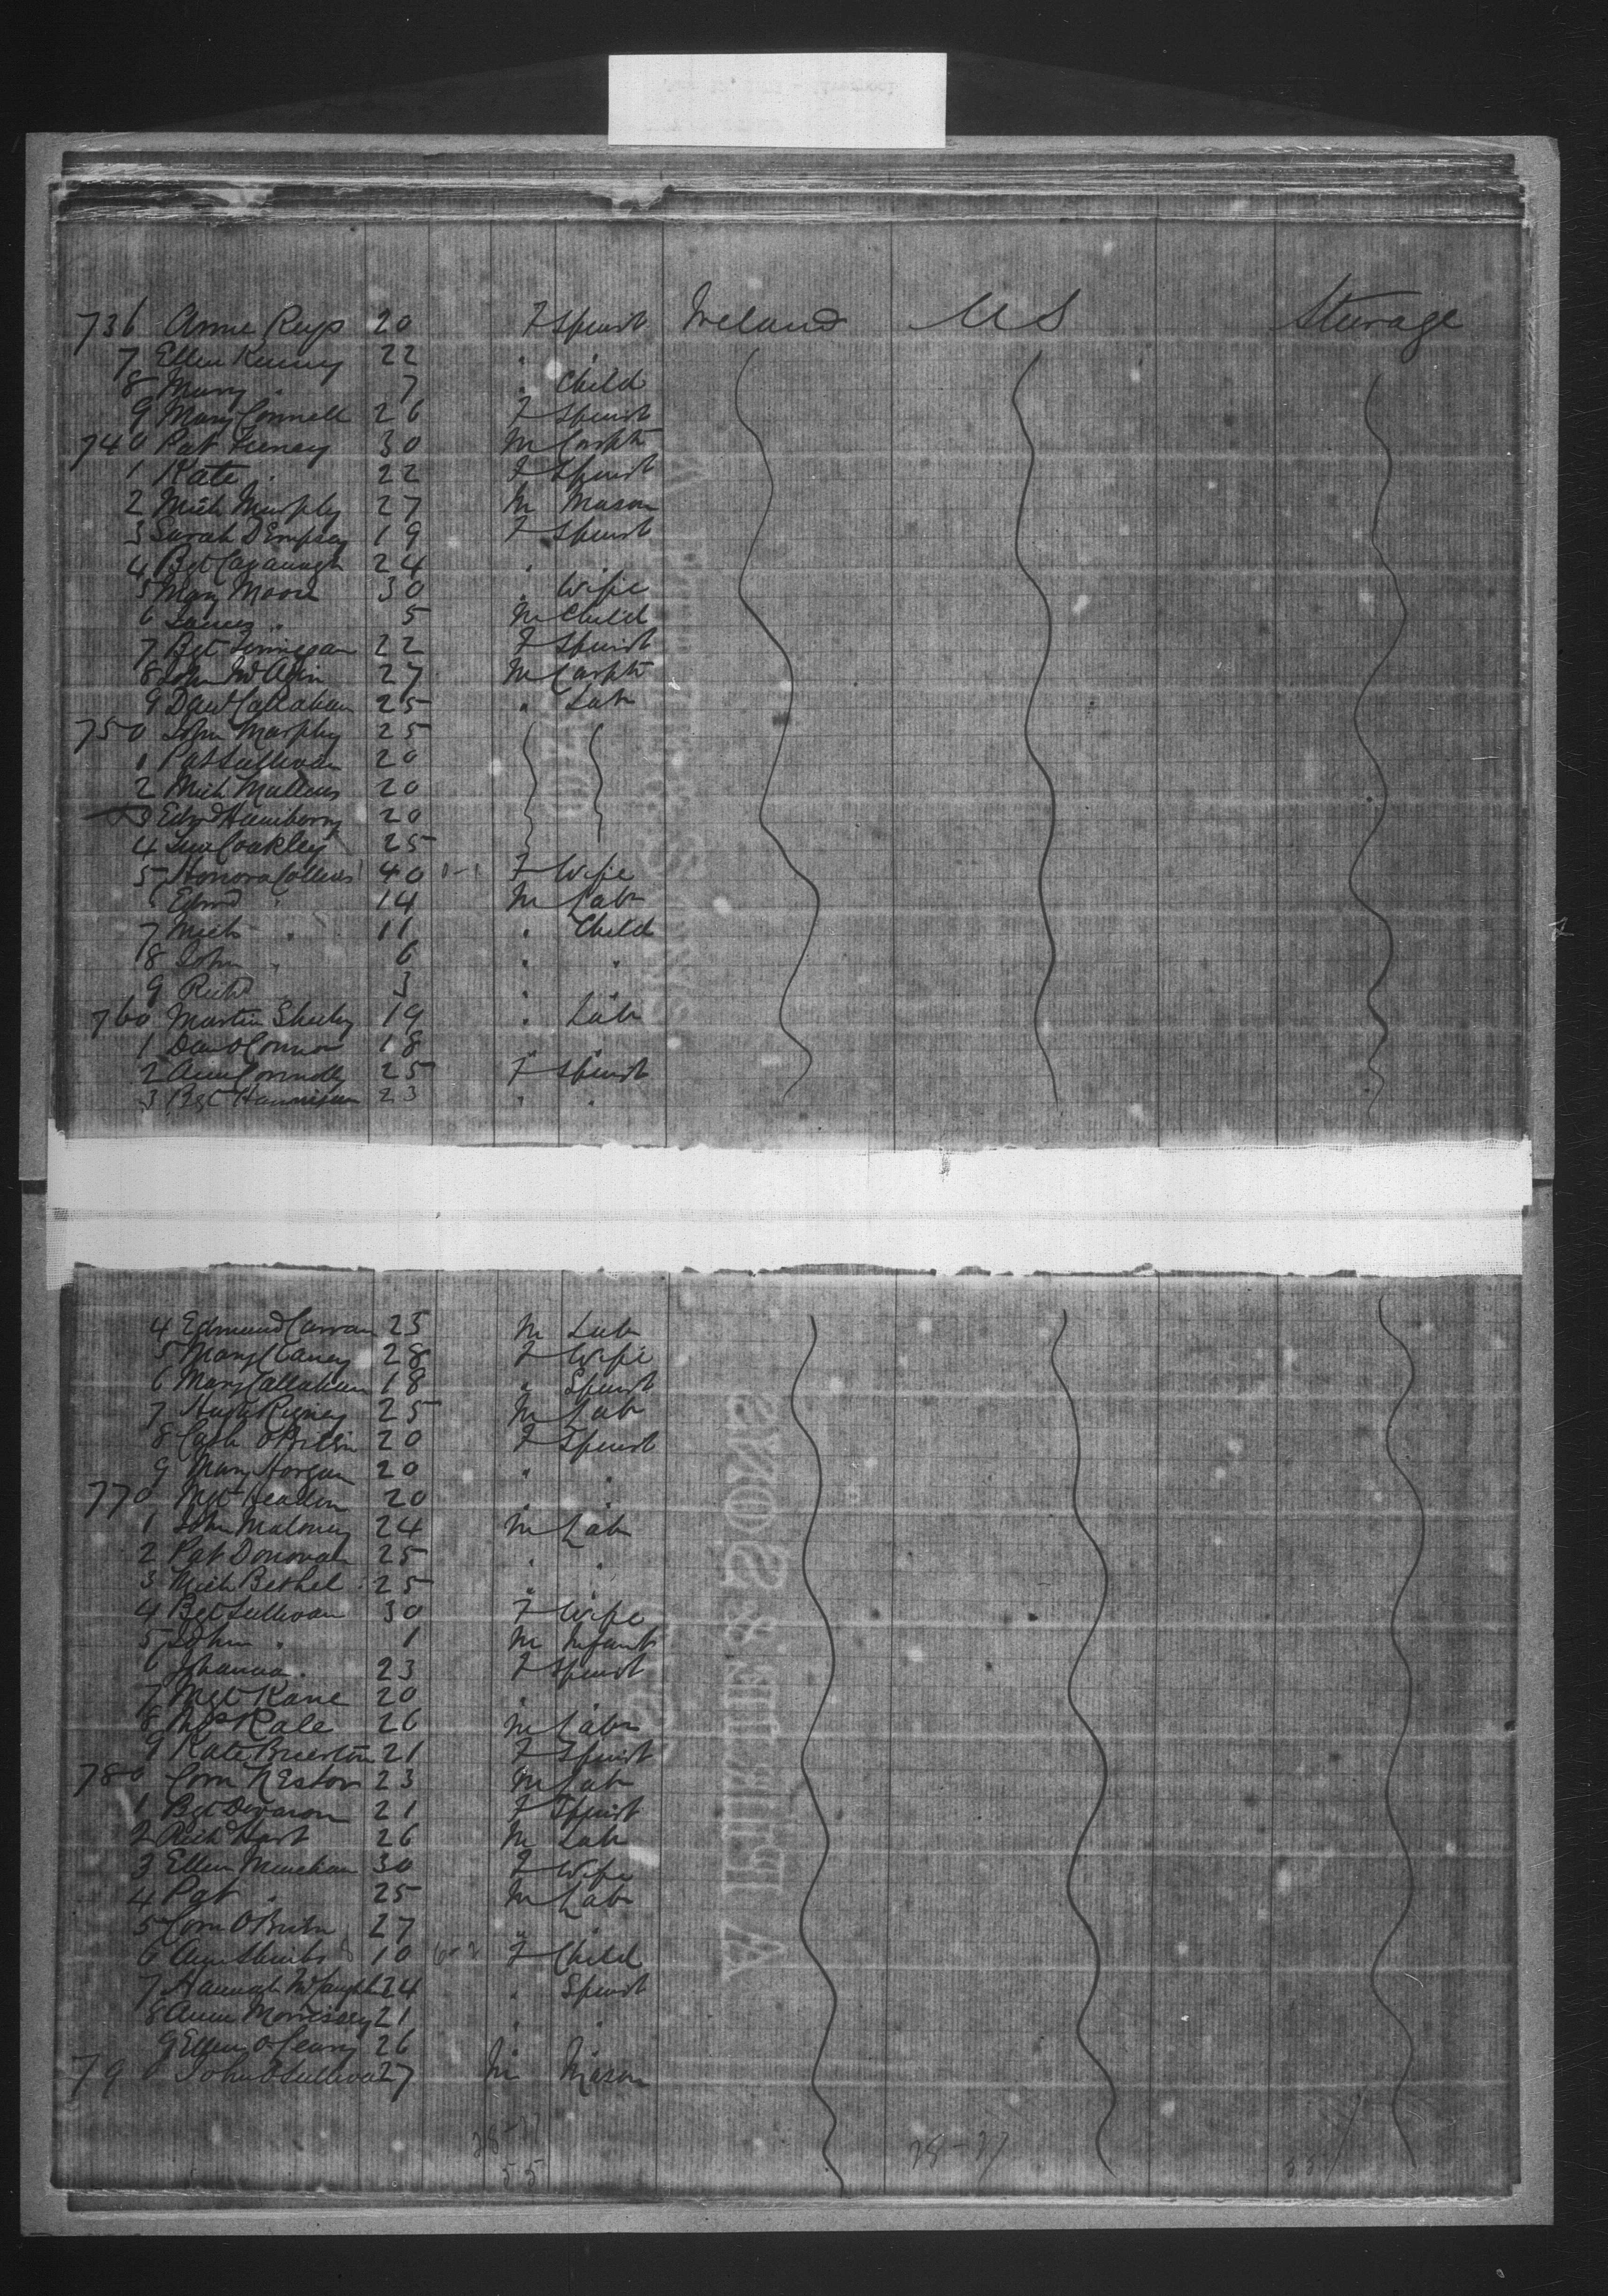 736 Annie 20 F Spinst Ireland US Steerage
7 Ellen 22 " "
8 Mary " 7 " Child
9 Mary Connell 26 F Spinst
740 Pat Feeney 30 M Carptr
1 Kate " 22 F Spinst
2 Mich Murphy 27 M Mason
3 Sarah DEmpsey 19 F Spinst
4 Bgt Cavanagh 24 " "
5 Mary Moore 30 " Wife
6 James " 5 M Child
7 Bgt Finnegan 22 F Spinst
8 John 27 M Carptr
9 Danl Callahan 25 " Lab
750 John Murphy 25
1 Pat Sullivan 20
2 Mich Mullins 20
3 Edmd 20
4 Coakley 25
5 Honora Collins 40 F Wife
6 Edmd " 14 M Lab
7 Mich " 11 " Child
8 John " 6 " "
9 Richd 3 "
760 Martin Sheehy 19 " Lab
1 Danl OConnor 18 " "
2 Ann Connolly 25 F Spinst
3 Bgt Hannigan 23 " "
4 Edmund Curran 25 M Lab
5 Mary Clancy 28 F Wife
6 Mary Callahan 18 " Spinst
7 Hugh Rigney 25 M Lab
8 Cath OBrien 20 F Spinst
9 Mary Horgan 20 " "
770 Mgt Headon 20 " "
1 John Maloney 24 M Lab
2 Pat Donovan 25 " "
3 Mich Bethel 25 " "
4 Bgt Sullivan 30 F Wife
5 John " 1 M Infant
6 Johanna " 23 F Spinst
7 Mgt Kane 20 " "
8 Kale 26 M Lab
9 Kate Brierton 21 F Spinst
780 Corn NEstor 23 M Lab
1 Bgt 21 F Spinst
2 Richd Hart 26 M Lab
3 Ellen Meachan 30 F Wife
4 Pat " 25 M Lab
5 Corn OBrien 27 " "
6 Ann 10 F Child
7 Hannah 24 " Spinst
8 Ann Morrissey 21 " "
9 Ellen OLeary 26
790 John OSullivan 27 M Mason
28-27 28-27
55 55